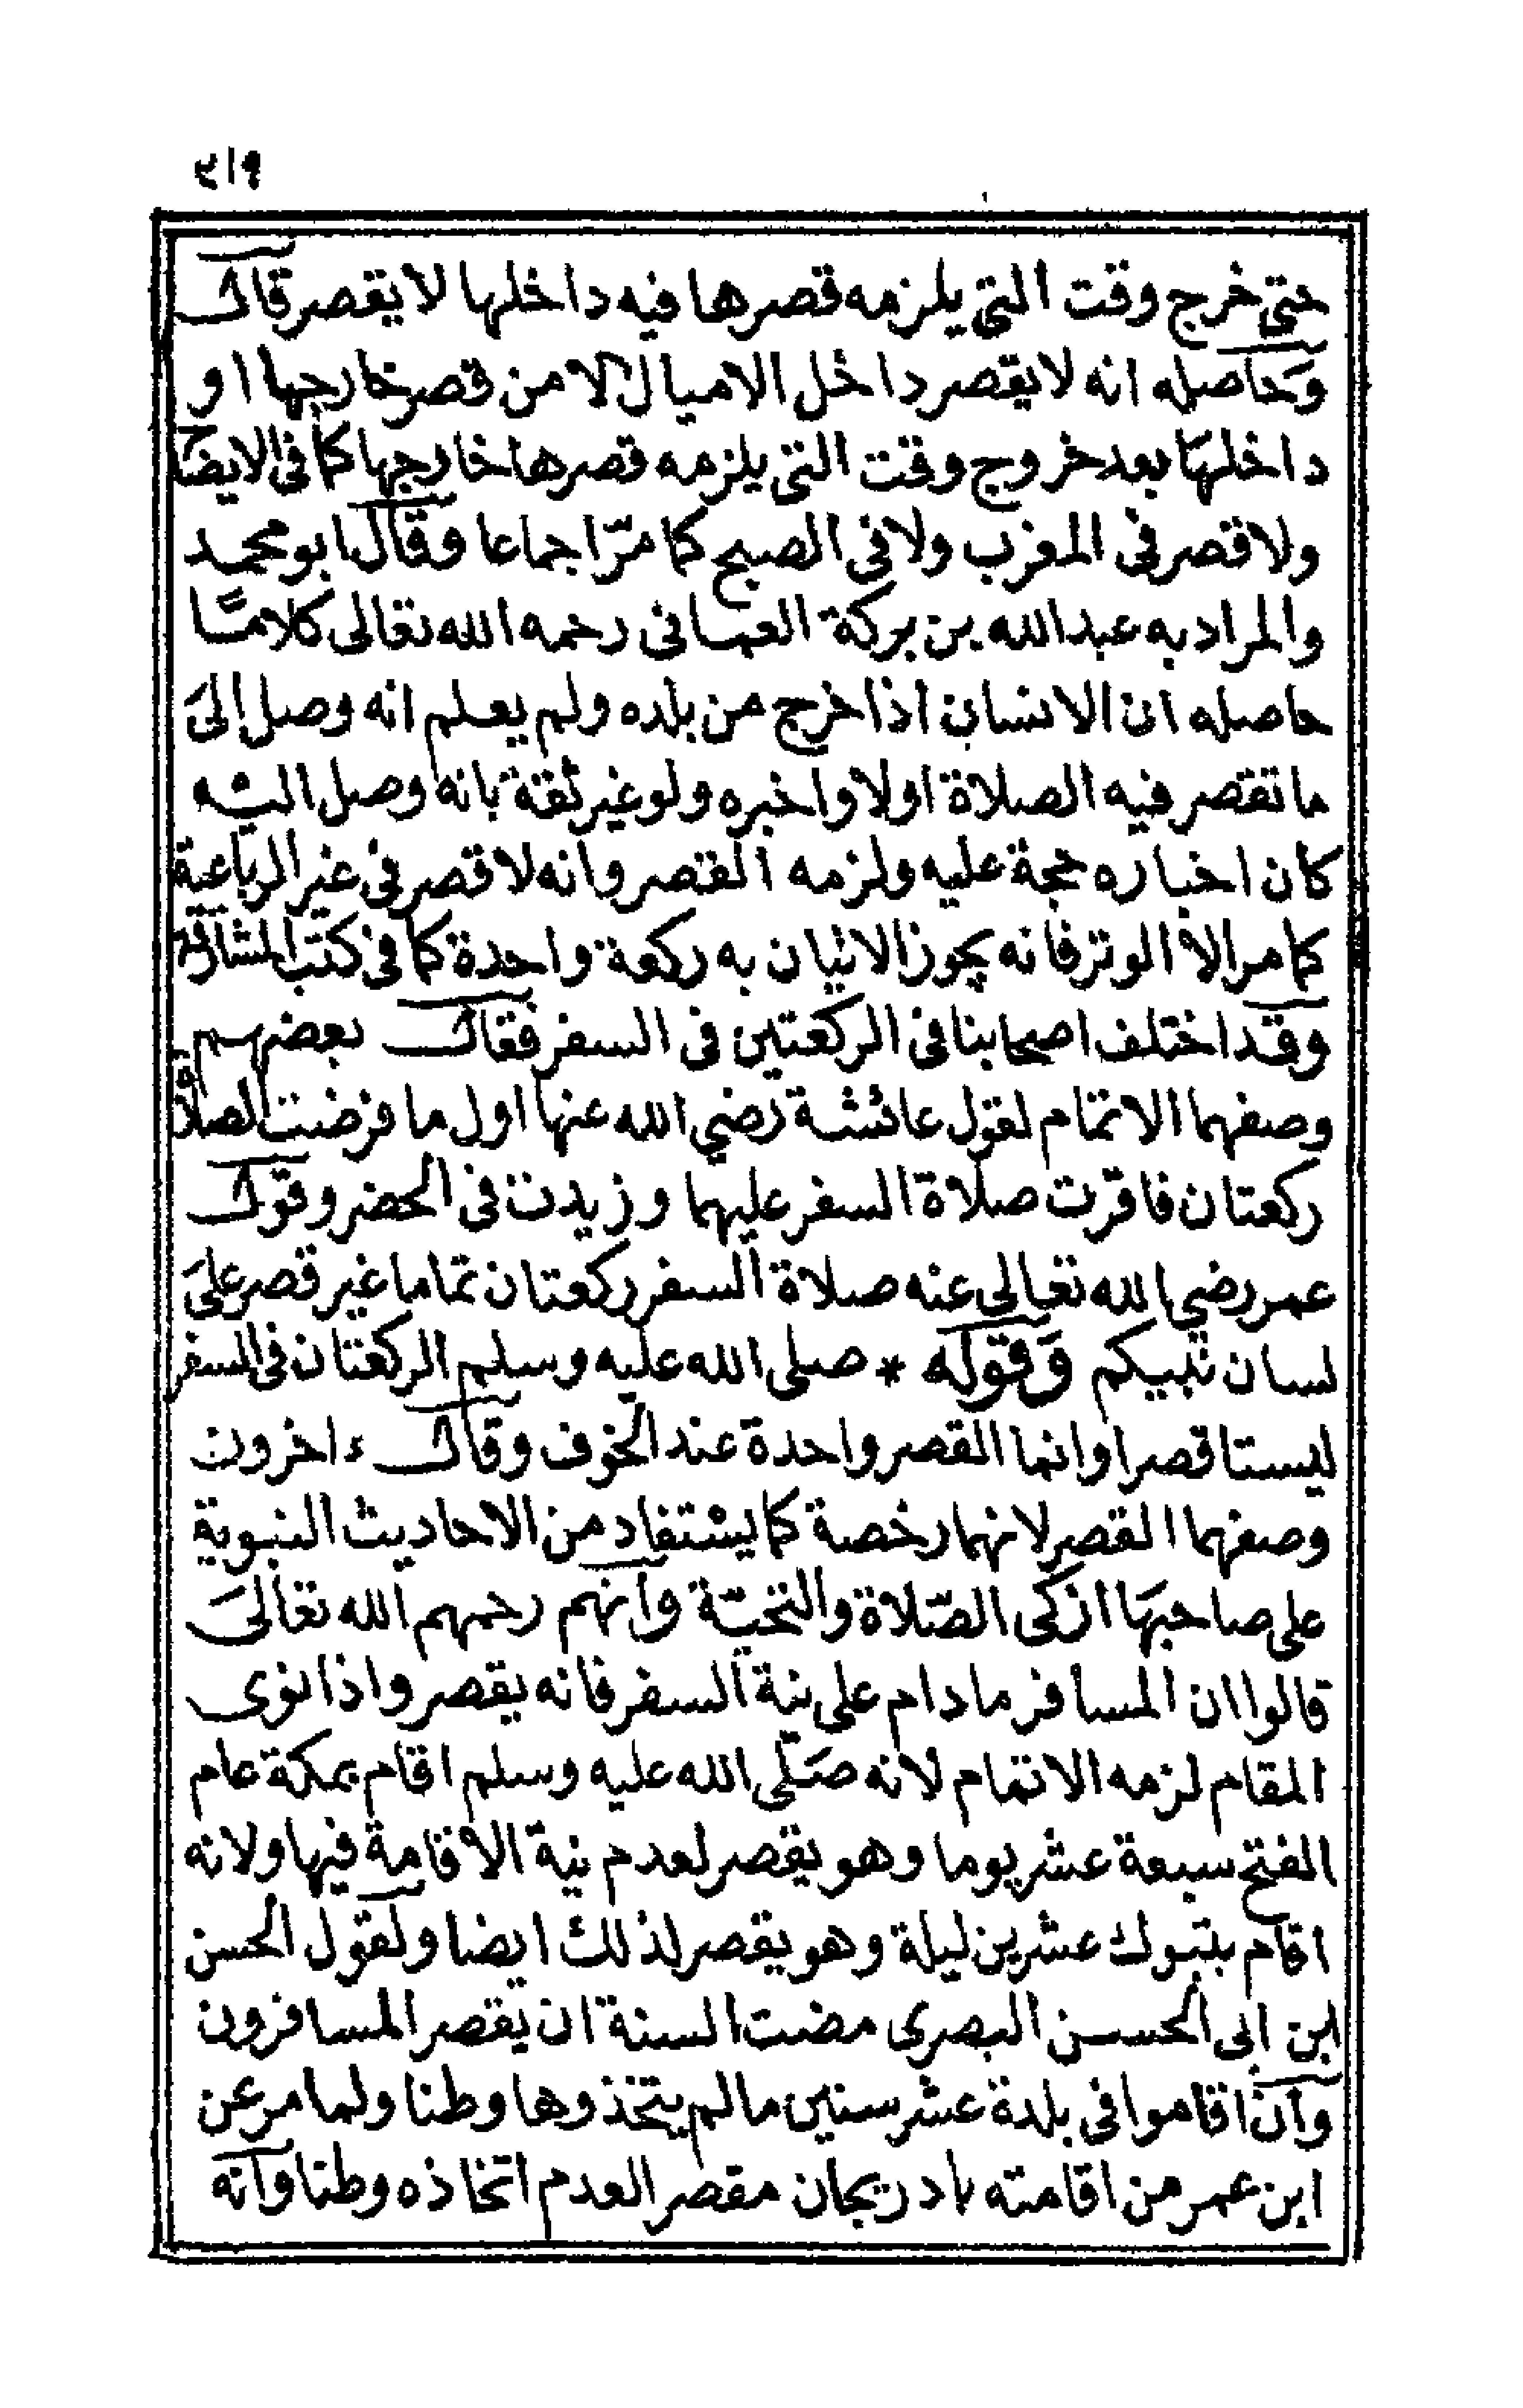 ٢١٩
حتى خرج وقت التى يلزمه قصرها فيه داخلها لا يقصر قال
وحاصله انه لا يقصر داخل الاميال الا من قصر خارجها او
داخلها بعد خروج وقت التى يلزمه قصرها خارجها كما فى الايضاح
ولا قصر فى المغرب ولا فى الصبح كما مرّ اجماعا وقال ابو محمد
والمراد به عبد الله بن بركة العمانى رحمه الله تعالى كلامًا
حاصله ان الانسان اذا خرج من بلده ولم يعلم انه وصل إلىَ
ما تقصر فيه الصلاة اولا واخبره ولو غير ثقة بانه وصل اليه
كان اخباره حجة عليه ولزمه القصر وانه لا قصر فى غير الرباعية
كما مر الا الوتر فانه يجوز الاتيان به ركعة واحدة كما فى كتب المشارقة
وقد اختلف اصحابنا فى الركعتين فى السفر فقال بعضهم
وصفهما الاتمام لقول عائشة رضي الله عنها اول ما فرضت الصلاة
ركعتان فاقرت صلاة السفر عليهما وزيدت فى الحضر وقول
عمر رضي الله تعالى عنه صلاة السفر ركعتان تماما غير قصر علىَ
لسان نبيكم وَقوله * صلى الله عليه وسلم الركعتان فى السفر
ليستا قصرا وانما القصر واحدة عند الخوف وقال ءاخرون
وصفهما القصر لانهما رخصة كما يستفاد من الاحاديث النبوية
على صاحبها ازكى الصّلاة والتحيّة وانهم رحمهم الله تعالىَ
قالوا ان المسافر ما دام على نية السفر فانه يقصر واذا نوى
المقام لزمه الاتمام لانه صَلّى الله عليه وسلم اقام بمكة عام
الفتح سبعة عشر يوما وهو يقصر لعدم نية الاقامة فيها ولانه
اقام بتبوك عشرين ليلة وهو يقصر لذلك ايضا ولقول الحسن
ابن ابى الحسن البصرى مضت السنة ان يقصر المسافرون
وان اقاموا فى بلدة عشر سنين ما لم يتخذوها وطنا ولما مر عن
ابن عمر من اقامته بادريجان مقصرا لعدم اتخاذه وطنا وانه